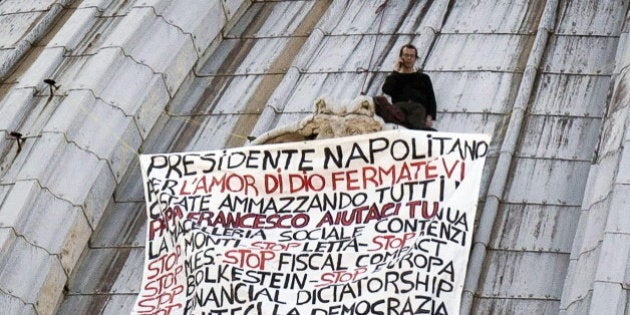 PRESIDENTE NAPOLITANO
PER L'AMOR DI DIO FERMATEVI
STATE AMMAZZANDO TUTTI!
PAPA FRANCESCO AIUTACI TU
LA MACELLERIA SOCIALE CONTINUA
MONTI-STOP LETTA-STOP
STOP FISCAL COMPACT
BOLKESTEIN-STOP EUROPA
FINANCIAL DICTATORSHIP
LA DEMOCRAZIA